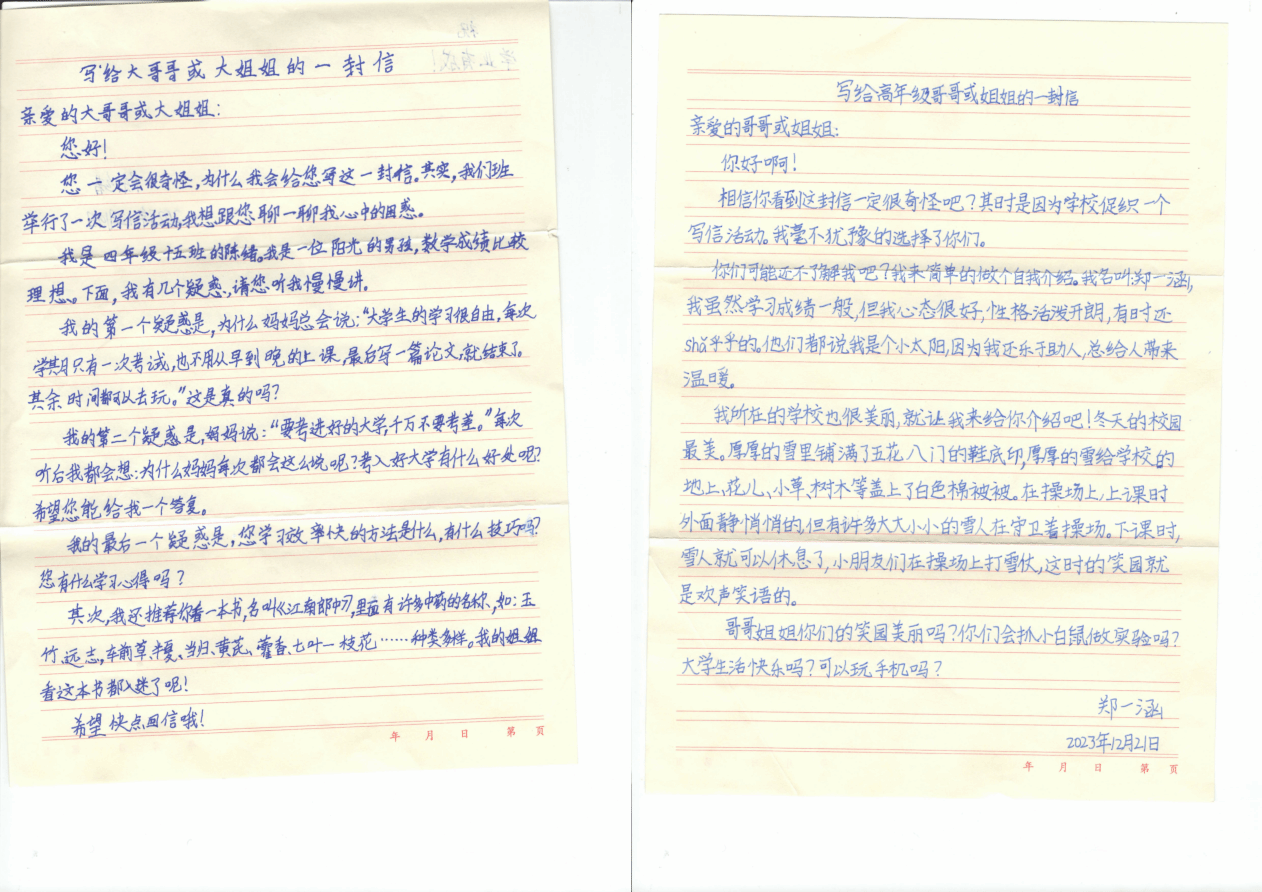 写给大哥哥或大姐姐的一封信
亲爱的大哥哥或大姐姐:
您好!
您一定会很奇怪,为什么我会给您写这一封信。其实,我们班
举行了一次写信活动,我想跟您聊一聊我心中的困惑。
我是四年级十五班的陈绪。我是一位阳光的男孩,数学成绩比较
理想。下面,我有几个疑惑,请您听我慢慢讲。
我的第一个疑惑是,为什么妈妈总会说:“大学生的学习很自由,每次
学期只有一次考试,也不用从早到晚的上课,最后写一篇论文,就结束了。
其余时间都可以去玩。”这是真的吗?
我的第二个疑惑是,妈妈说:“要考进好的大学,千万不要考差。”每次
听后我都会想:为什么妈妈每次都会这么说呢?考入好大学有什么好处呢?
希望您能给我一个答复。
我的最后一个疑惑是,您学习效率快的方法是什么,有什么技巧吗?
您有什么学习心得吗?
其次,我还推荐你看一本书,名叫《江南郎中》,里面有许多中药的名称,如:玉
竹、远志,车前草、半夏、当归、黄芪、藿香、七叶一枝花……种类多样。我的姐姐
看这本书都入迷了呢!
希望快点回信哦!
年 月 日 第 页
写给高年级哥哥或姐姐的一封信
亲爱的哥哥或姐姐:
你好啊!
相信你看到这封信一定很奇怪吧?其时是因为学校促织一个
写信活动。我毫不犹豫的选择了你们。
你们可能还不了解我吧?我来简单的做个自我介绍。我名叫:郑一涵,
我虽然学习成绩一般,但我心态很好,性格活泼开朗,有时还
shǎ乎乎的。他们都说我是个小太阳,因为我还乐于助人,总给人带来
温暖。
我所在的学校也很美丽,就让我来给你介绍吧!冬天的校园
最美。厚厚的雪里铺满了五花八门的鞋底印,厚厚的雪给学校的
地上、花儿、小草、树木等盖上了白色棉被被。在操场上,上课时
外面静悄悄的,但有许多大大小小的雪人在守卫着操场。下课时,
雪人就可以休息了,小朋友们在操场上打雪仗,这时的笑园就
是欢声笑语的。
哥哥姐姐你们的笑园美丽吗?你们会抓小白鼠做实验吗?
大学生活快乐吗?可以玩手机吗?
郑一涵
2023年12月21日
年 月 日 第 页